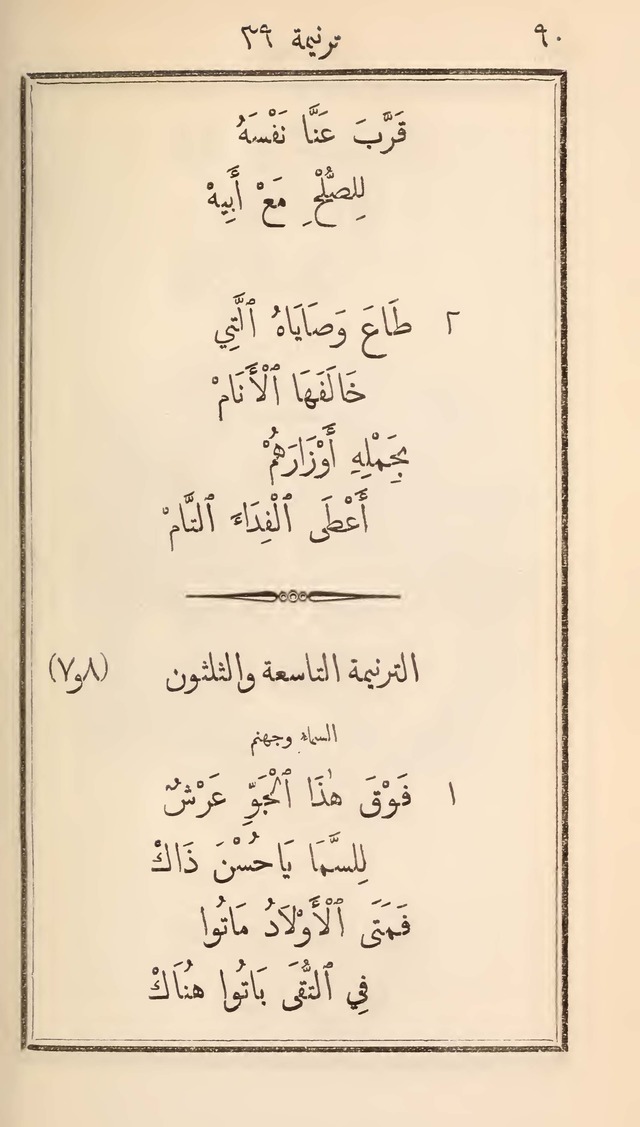 ٩٠ ترنيمة ٣٩
قَرَّبَ عَنَّا نَفْسَهُ
لِلصُّلْحِ مَعْ أَبِيهْ
٢ طَاعَ وَصَايَاهُ ٱلَّتِي
خَالَفَهَا ٱلْأَنَامْ
بِحَمْلِهِ أَوْزَارَهُمْ
أَعْطَى ٱلْفِدَاءَ ٱلتَّامْ
الترنيمة التاسعة والثلثون (٨و٧)
السماء وجهنم
١ فَوْقَ هٰذَا ٱلْجَوِّ عَرْشٌ
لِلسَّمَا يَا حُسْنَ ذَاكْ
فَمَتَى ٱلْأَوْلَادُ مَاتُوا
فِي ٱلتُّقَى بَاتُوا هُنَاكْ